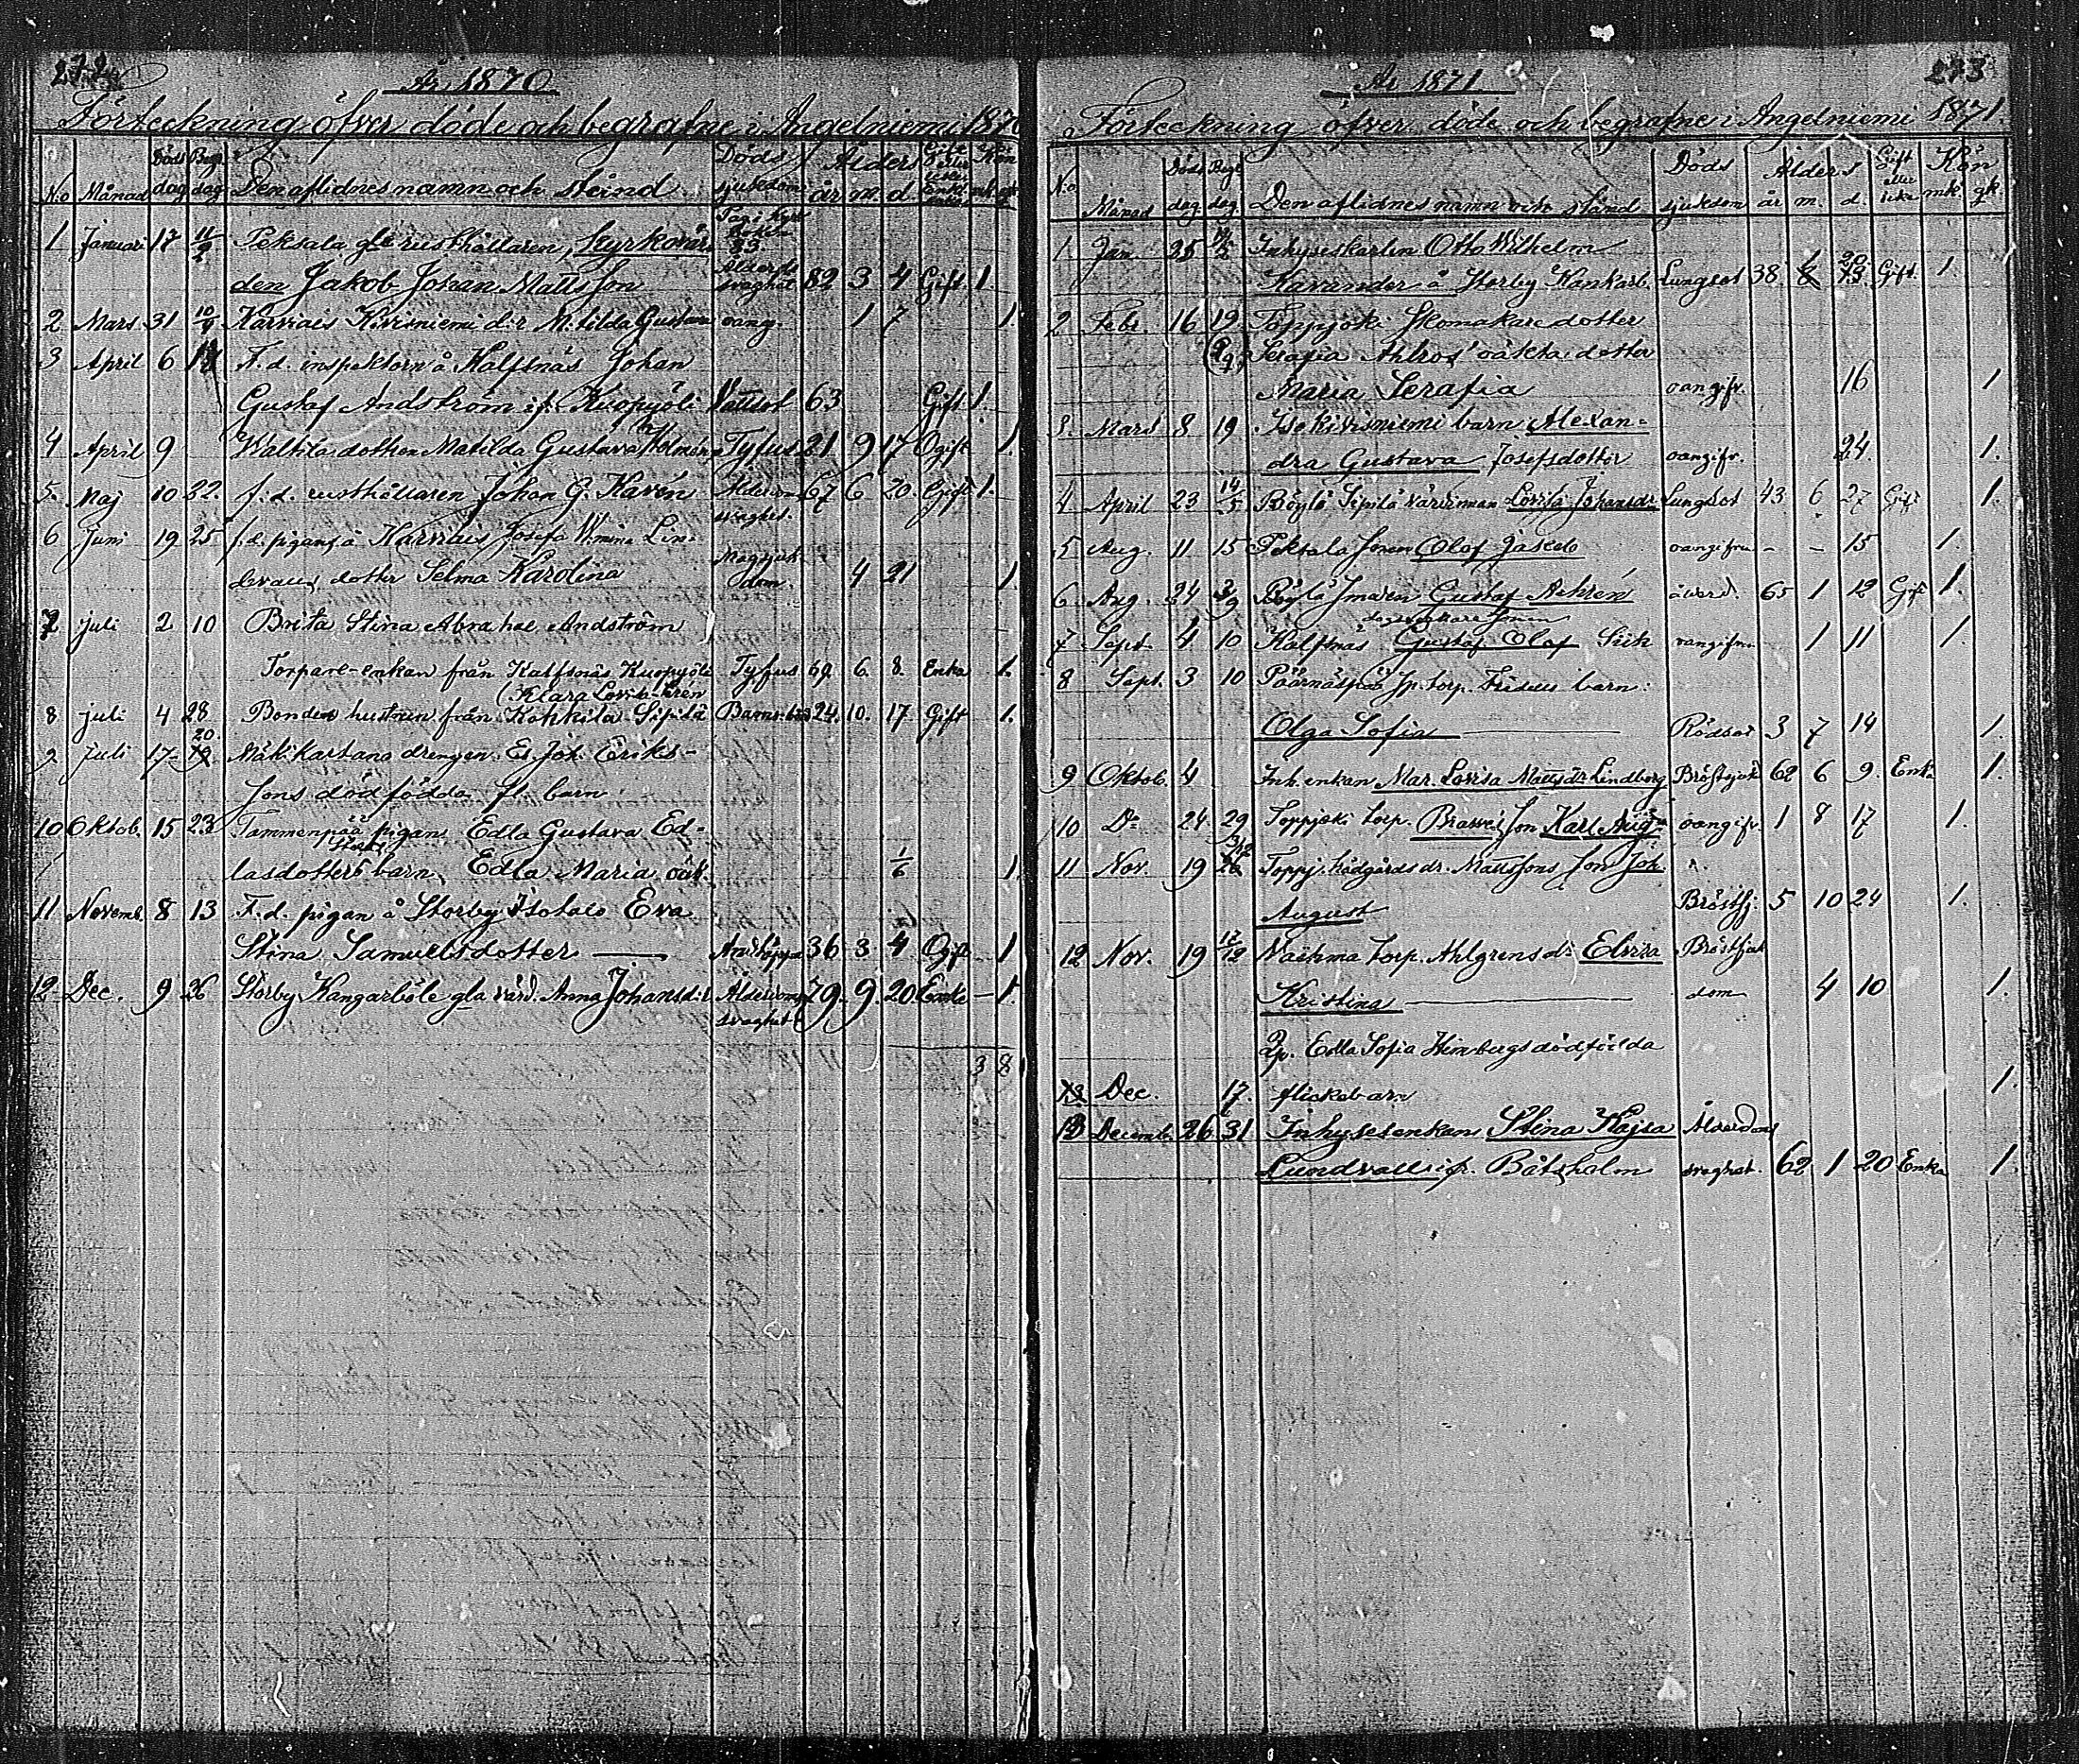 272
År 1870.
Förteckning öfver döde och begrafne i Angelniemi 1870
No Månad Döds dag Begr. dag Den aflidnes namn och stånd Döds sjukdom Ålders år m. d. Gift eller Kön
1 Januari 17 11/2 Peksala gle rusthållaren, Kyrkovär-
den Jakob Johan Mattsson Ålderds svaghet 82 3 4 Gift 1
2 Mars 31 10/4 Karviais Kivisniemi d:r Matilda Gustava oang. 1 7 1.
3 April 6 17 F. d. inspektorn å Kalfsnäs Johan
Gustaf Andström if. Kuopyöli Vattsot 63 Gift 1.
4 April 9 Waltila dottren Matilda Gustava Holmén Tyfus 21 9 17 Ogift 1.
5. Maj 10 22. f. d. rusthållaren Johan G. Kavén Ålderdoms svaghet. 67 6 20. Gift 1.
6 Juni 19 25 f. d. pigans å Karviais Josefa W:mina Lin-
devalls dotter Selma Karolina Magsjukdom. 4 21 1.
7 juli 2 10 Brita Stina Abrahae Andström
Torpare-enkan från Kalfsnäs Kuopyöli Tyfus 69. 6. 8. Enka 1.
8 juli 4 28 Bonden hustrun från Kokkila Sipilä Barns-börd 24. 10. 17. Gift 1.
9 juli 17. 20 Mälikartano drengen Er. Joh. Eriks-
sons dödfödda fl. barn
10 Oktob. 15 23 Tammenpää pigans Edla Gustava Ed-
lasdotters barn Edla Maria oäk. 1/6 1
11 Novemb. 8 13 F. d. pigan å Storby Isotalo Eva
Stina Samuelsdotter 36 3 4 Ogift 1
12 Dec. 9 26 Storby Kangarböle gla värd. Anna Johansd:r Ålderdoms svaghet 79. 9. 20 Enka 1.
3 8
273
År 1871
Förteckning öfver döde och begrafne i Angelniemi 1871.
No Månad Döds dag Begr. dag. Den aflidnes namn och stånd Döds sjukdom Ålders år m. d. Gift eller icke Kön mk. qk.
1. Jan. 25 Inhyseskarlen Otto Wilhelm
Kavander å Storby Kankarb. Lungsot 38. 20 Gift. 1.
2 Febr. 16 19 Toppjoki Skomakare dotter
Serafia Ahlros' oäkta dotter
Maria Serafia oangifv. 16 1
3. Mars 8 19 Isokivisniemi barn Alexan-
dra Gustava Josefsdotter oangifv. 24. 1.
4 April 23 14/5 Pöylä Sipilä värdinnan Lovisa Johansdr Lungsot 43 6 27 Gift 1.
5 Aug. 11 15 Peksala sonen Olof Jakob oangifven - - 15 1.
6 Aug. 24 3/9 Pöylä Gustaf Achrén 65 1 12 Gift 1.
7 Sept. 4 10 Kalfsnäs Gustaf Olof oangifven 1 11 1.
8 Sept. 3 10 Päärnäspää torp. barn:
Olga Sofia Rödsot 3 7 14 1.
9 Oktob. 4 Inh. enkan Mar. Lovisa Mattsdr Lindberg Bröstsjuk 62 6 9. Enka 1.
10 Do 24 29 Toppjoki torp. son Karl Aug. oangifv. 1 8 17 1.
11 Nov. 19 Toppj. dr. Mattssons son Joh.
August Bröstsj. 5 10 24 1.
12 Nov. 19 17/12 torp. Ahlgrens dr Elvira Bröstsjuk
Kristina dom 4 10 1.
Edla Sofia dödfödda
Dec. 17. flickebarn 1.
13 Decemb. 26 31 Inhysesenkan Stina Kajsa Ålderdoms
Lundvall ifr. Båtsholm svaghet. 62 1 20 Enka 1.